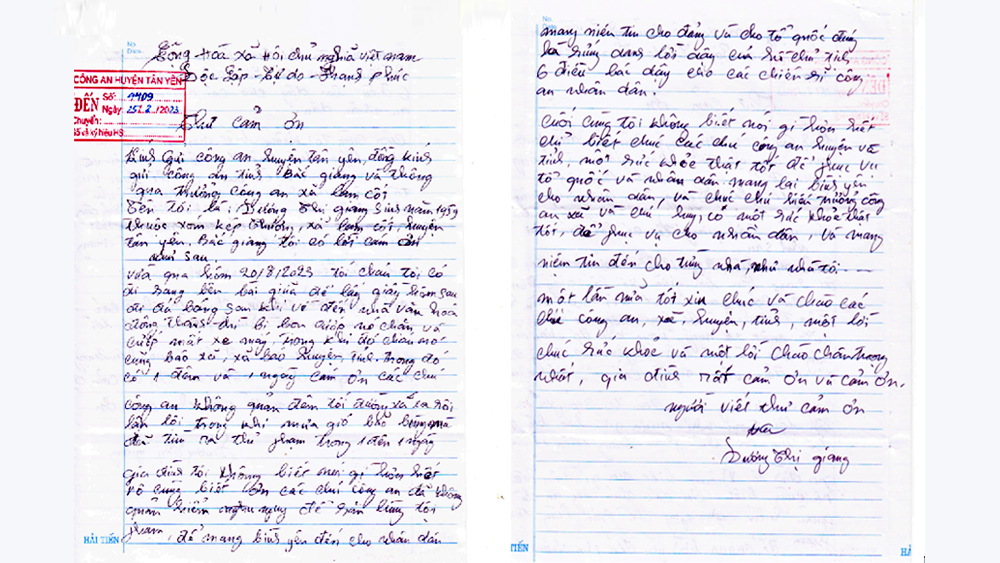 No.
Date
Cộng hoà xã hội chủ nghĩa việt nam
Độc lập - Tự do - Hạnh phúc
CÔNG AN HUYỆN TÂN YÊN
ĐẾN
Số: 1409
Ngày: 25/.8./2023
Chuyển:
Số và ký hiệu HS
Thư cảm ơn
Kính gửi công an huyện tân yên, đồng kính
gửi công an tỉnh Bắc giang và thông
qua trưởng công an xã lam cốt
tên tôi là: Dương Thị giang sinh năm 1959
thuộc xóm kép thượng, xã lam cốt, huyện
tân yên. Bắc giang tôi có lời cảm ơn
như sau.
vừa qua hôm 20/8/2023 tối cháu tôi có
đi sang bên bãi giữa để lấy giầy hôm sau
đi đá bóng sau khi về đến nhà văn hoá
đông thành thì bị bọn cướp nó chặn và
cướp mất xe máy, trong khi đó cháu nó
cũng báo xã, xã báo huyện, tỉnh. trong đó
có 1 đêm và 1 ngày cảm ơn các chú
công an không quản đêm tối đường xá xa xôi
lặn lội trong khi mưa gió bão bùng mà
đã tìm ra thủ phạm trong 1 đêm 1 ngày
gia đình tôi không biết nói gì hơn hết
vô cùng biết ơn các chú công an đã không
quản hiểm nguy để săn lùng tội
phạm, để mang bình yên đến cho nhân dân
HẢI TIẾN
No.
Date
mang niên tin cho đảng và cho tổ quốc đúng
là xứng danh lời dậy của Hồ chủ tịch
6 điều bác dậy cho các chiến sĩ công
an nhân dân.
cuối cùng tôi không biết nói gì hơn hết
chỉ biết chúc các chú công an huyện và
tỉnh, một sức khỏe thật tốt để phục vụ
tổ quốc và nhân dân mang lại bình yên
cho nhân dân, và chúc chú trưởng công
an xã và chú có một sức khỏe thật
tốt, để phục vụ cho nhân dân, và mang
niệm tin đến cho từng nhà, như nhà tôi
một lần nữa tôi xin chúc và chào các
chú công an, xã, huyện, tỉnh, một lời
chúc sức khoẻ và một lời chào chân trọng
nhất, gia đình rất cảm ơn và cảm ơn.
người viết thư cảm ơn
Dương Thị giang
HẢI TIẾN